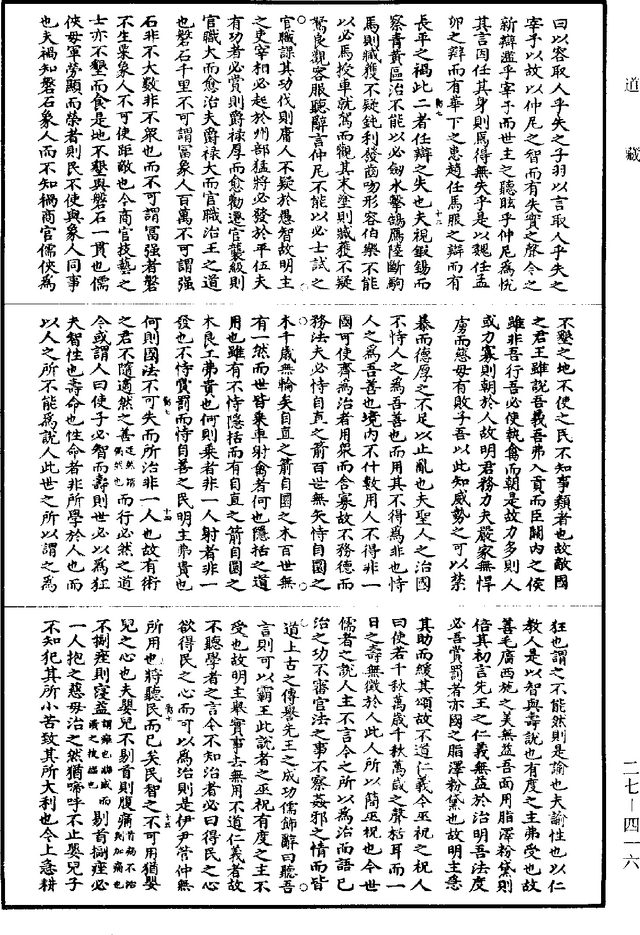 道藏
曰以容取人乎失之子羽以言取人乎失之
宰予以故以仲尼之智而有失實之聲今之
新辯濫乎宰予而世主之聽眩乎仲尼為悅
其言因任其身則焉得無失乎是以魏任孟
卯之辯而有華下之患趙任馬服之辯而有
長平之禍此二者任辯之失也夫視鍛錫而
察青黃區冶不能以必劒水擊鵠鴈陸斷駒
馬則臧獲不疑鈍利發齒吻形容伯樂不能
以必馬授車就駕而觀其末塗則臧獲不疑
駑良觀容服聽辭言仲尼不能以必士試之
官職課其功伐則庸人不疑於愚智故明主
之吏宰相必起於州部猛將必發於平伍夫
有功者必賞則爵祿厚而愈勸遷官襲級則
官職大而愈治夫爵祿大而官職治王之道
也磐石千里不可謂富象人百萬不可謂強
石非不大數非不衆也而不可謂富強者磐
不生粟象人不可使距敵也今商官技藝之
士亦不墾而食是地不墾與磐石一貫也儒
俠毋軍勞顯而榮者則民不使與象人同事
也夫禍知磐石象人而不知禍商官儒俠為
不墾之地不使之民不知事類者也故敵國
之君王雖說吾義吾弗入貢而臣關內之侯
雖非吾行吾必使執禽而朝是故力多則人
或力寡則朝於人故明君務力夫嚴家無悍
虜而慈母有敗子吾以此知威勢之可以禁
暴而德厚之不足以止亂也夫聖人之治國
不恃人之為吾善也而用其不得為非也恃
人之為吾善也境內不什數用人不得非一
國可使齊為治者用衆而舍寡故不務德而
務法夫必恃自直之箭百世無矢恃自圜之
木千歲無輪矣自直之箭自圜之木百世無
有一然而世皆乗車射禽者何也隱括之道
用也雖有不恃隱括而有自直之箭自圜之
木良工弗貴也何則乗者非一人射者非一
發也不恃賞罰而恃自善之民明主弗貴也
何則國法不可失而所治非一人也故有術
之君不隨適然之善適然謂偶然也而行必然之道
今或謂人曰使子必智而壽則世必以為狂
夫智性也壽命也性命者非所學於人也而
以人之所不能為說人此世之所以謂之為
狂也謂之不能然則是諭也夫諭性也以仁
教人是以智與壽說也有度之主弗受也故
善毛嬙西施之美無益吾面用脂澤粉黛則
倍其初言先王之仁義無益於治明吾法度
必吾賞罰者亦國之脂澤粉黛也故明主急
其助而緩其頌故不道仁義今巫祝之祝人
曰使若千秋萬歲千秋萬歲之聲栝耳而一
日之壽無徵於人此人所以簡巫祝也今世
儒者之說人主不言今之所以為治而語已
治之功不審官法之事不察姦邪之情而皆
道上古之傳譽先王之成功儒飾辭曰聽吾
言則可以霸王此說者之巫祝有度之主不
受也故明主舉實事去無用不道仁義者故
不聽學者之言今不知治者必曰得民之心
欲得民之心而可以為治則是伊尹管仲無
所用也將聽民而已矣民智之不可用猶嬰
兒之心也夫嬰兒不剔首則腹痛首病不治則加痛也
不㨽痤則寖益剔首㨽痤必
一人抱之慈母治之然猶啼呼不止嬰兒子
不知犯其所小苦致其所大利也今上急耕
二七—四一六